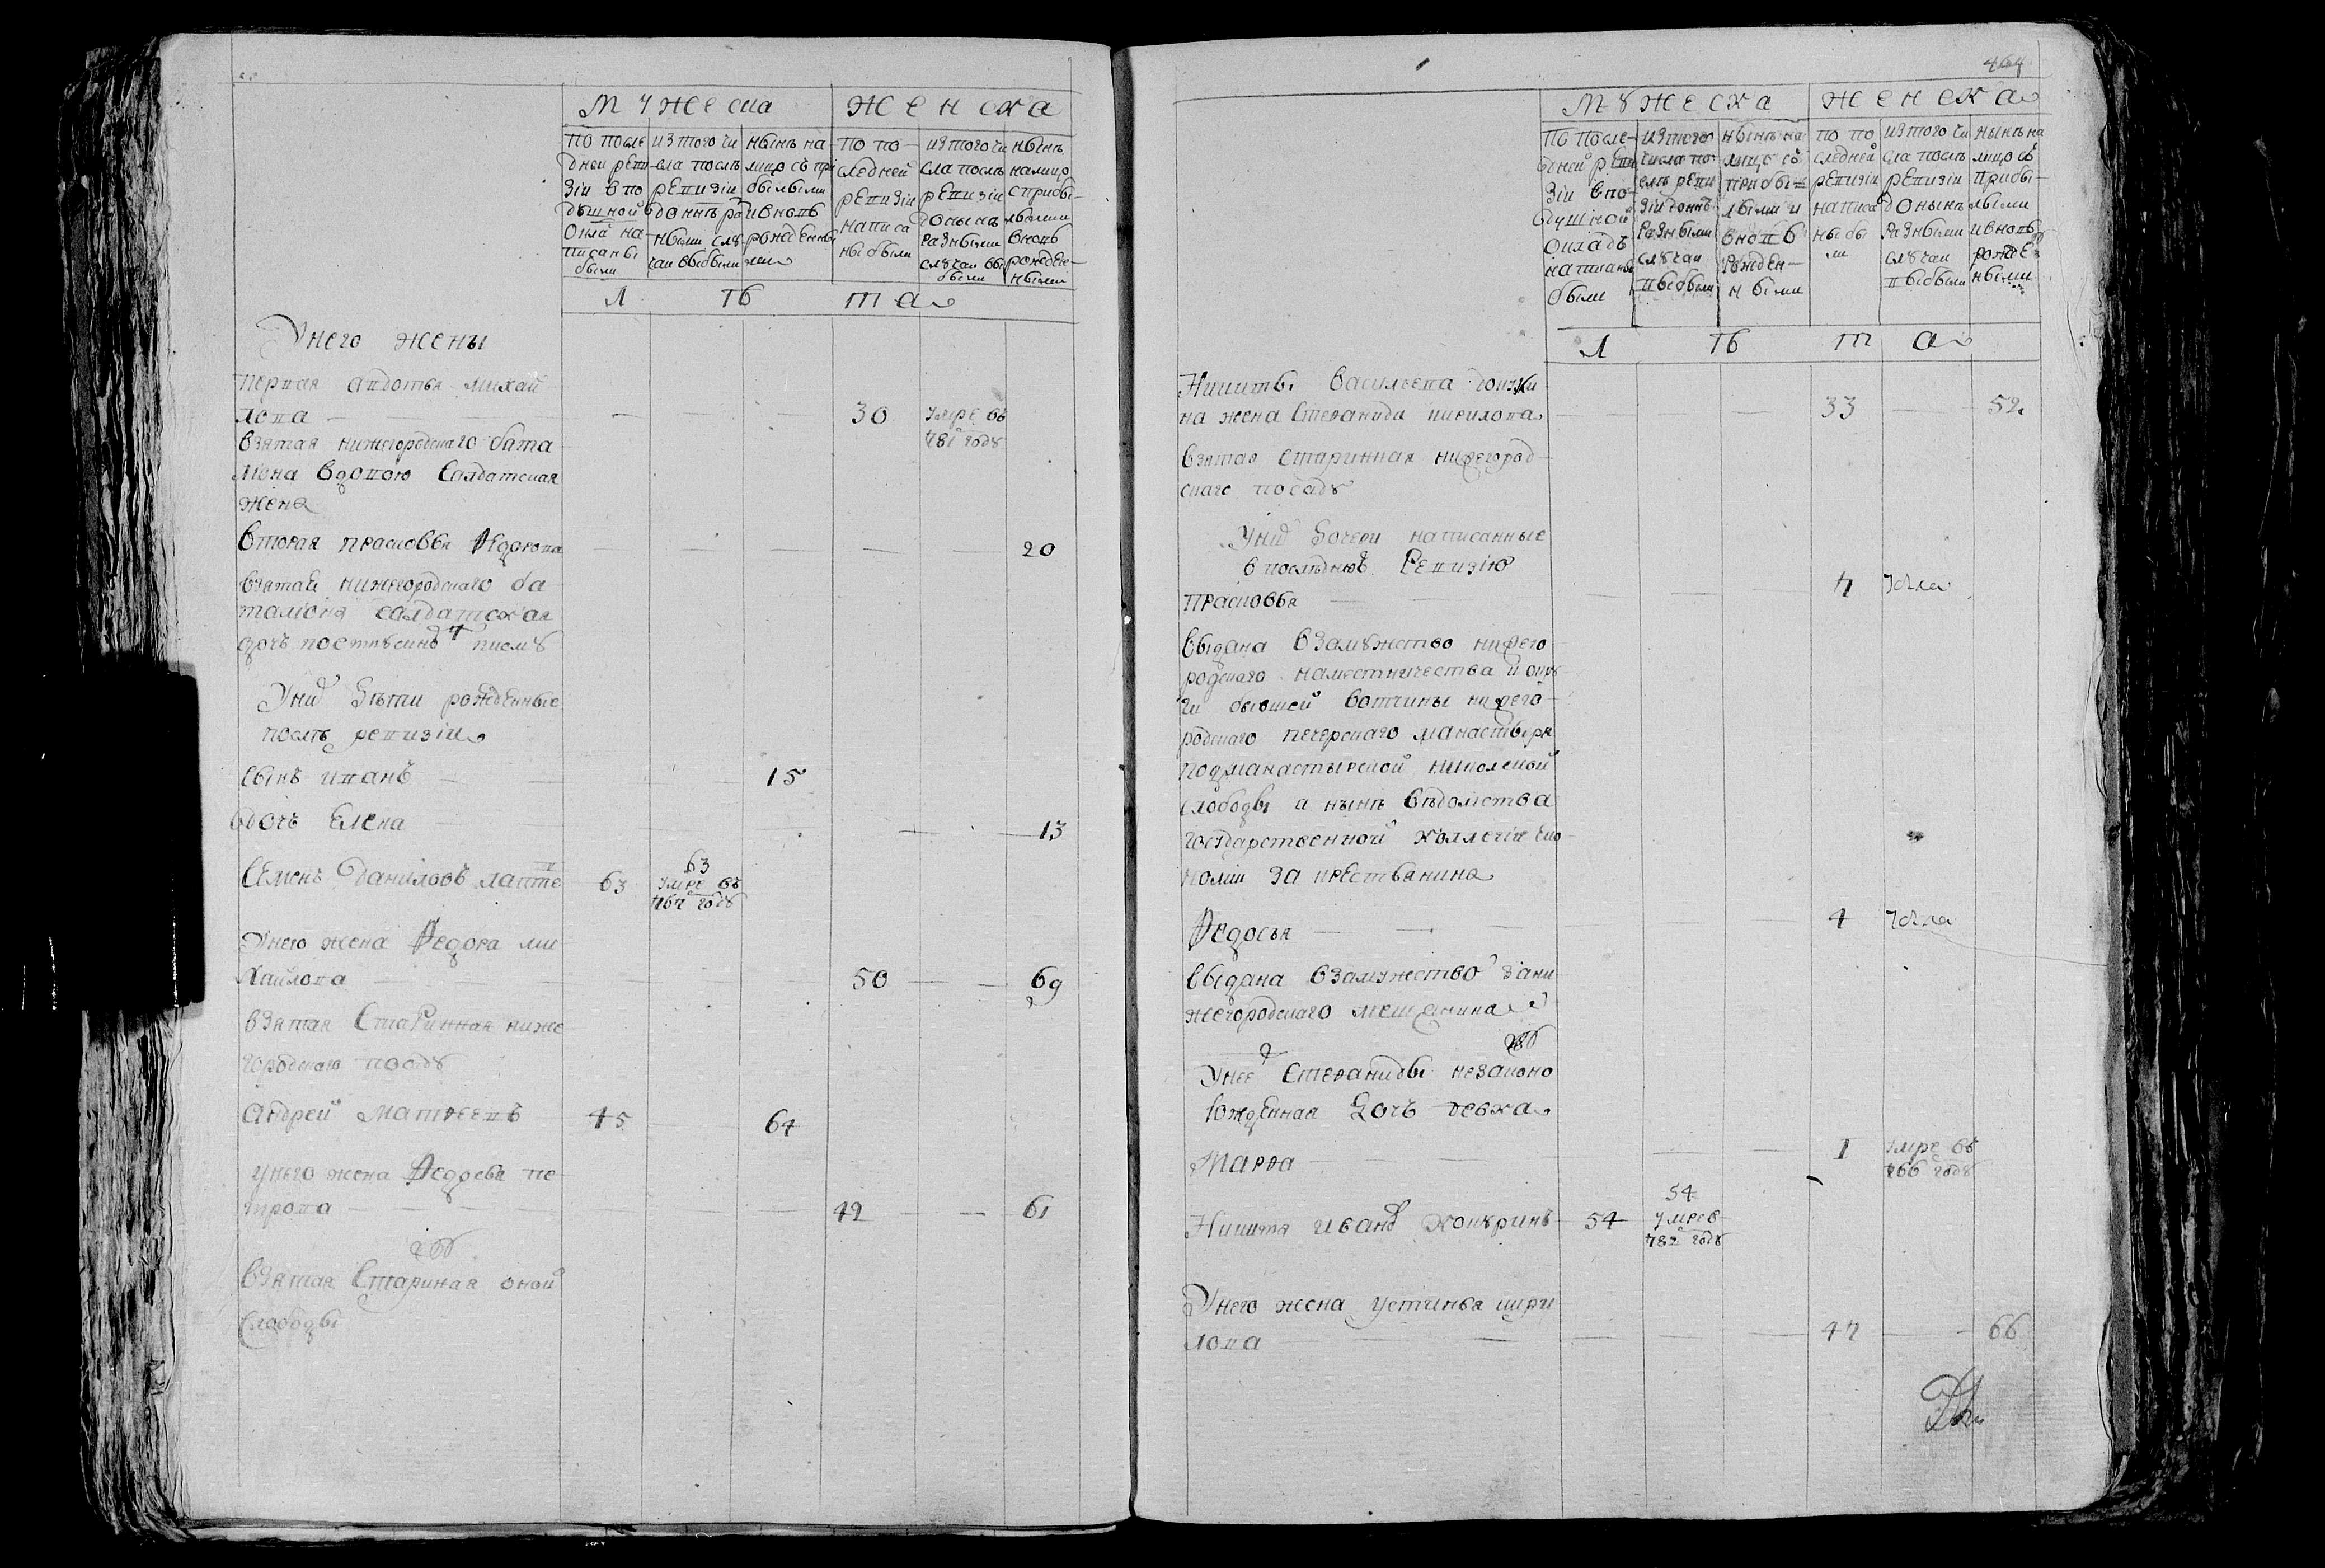 мужеска женска
по после дней ревизіи в подушной оклад написаны были
из того числа после ревизіи до ныне разными случаи выбыли
ныне на лицо с прибылыми и вновь рожденными
по последней ревизіи написаны были
из того числа после ревизіи до ныне разными случаи выбыли
ныне на лицо с прибылыми вновь рожденными
лѣта
У него жены
первая авдотья михай
лова — 30 умре въ
781 году
взятая нижегородскаго бата
лиона вдовою салдатская
жена
вторая прасковья Ѳедорова — 20
взятая нижегородскаго ба
талиона салдатская
дочь по
писму
У них дѣти рожденные
послѣ ревизіи
сынъ иванъ — 15
дочь елена — 13
Семенъ даниловъ лапте в 63 63
умре въ
764 году
У него жена Ѳедора ми
хайлова — 50 — 69
взятая старинная ниже
городскаго посаду
андрей матвеевъ 45 — 64
у него жена Ѳедосья пе
трова — 42 — 61
взятая стариная оной
слободы
464
мужеска женска
по последней ревизіи в подушной окладъ написаны были
из того числа послѣ ревизіи до нынѣ разными случаи выбыли
нынѣ на лице съ прибылыми и вновь рожденными
по последней ревизіи написаны были
из того числа послѣ ревизіи до нынѣ разными случаи выбыли
нынѣ на лицо съ прибылыми и вновь рожденными
лѣта
Никиты васильева
на жена степанида кирилова — 33 — 52
взятая старинная нижегород
скаго посаду
У них дочери написанные
в последнюю ревизію
прасковья — 7
выдана в замужство нижего
родскаго наместничества и окру
ги бывшей вотчины нижего
родскаго печерскаго манастыря
подманастырской никольской
слободы а нынѣ вѣдомства
государственной коллегіи еко
номіи за крестьянина
Ѳедосья — 4
выдана в замужство за ни
жегородскаго мещанина
У нее степаниды незаконо
рожденная дочь девка
Марѳа — 1 умре въ
766 году
Никита иванов кокуринъ 54 54
умре в
782 году
У него жена устинья кири
лова — 47 — 66